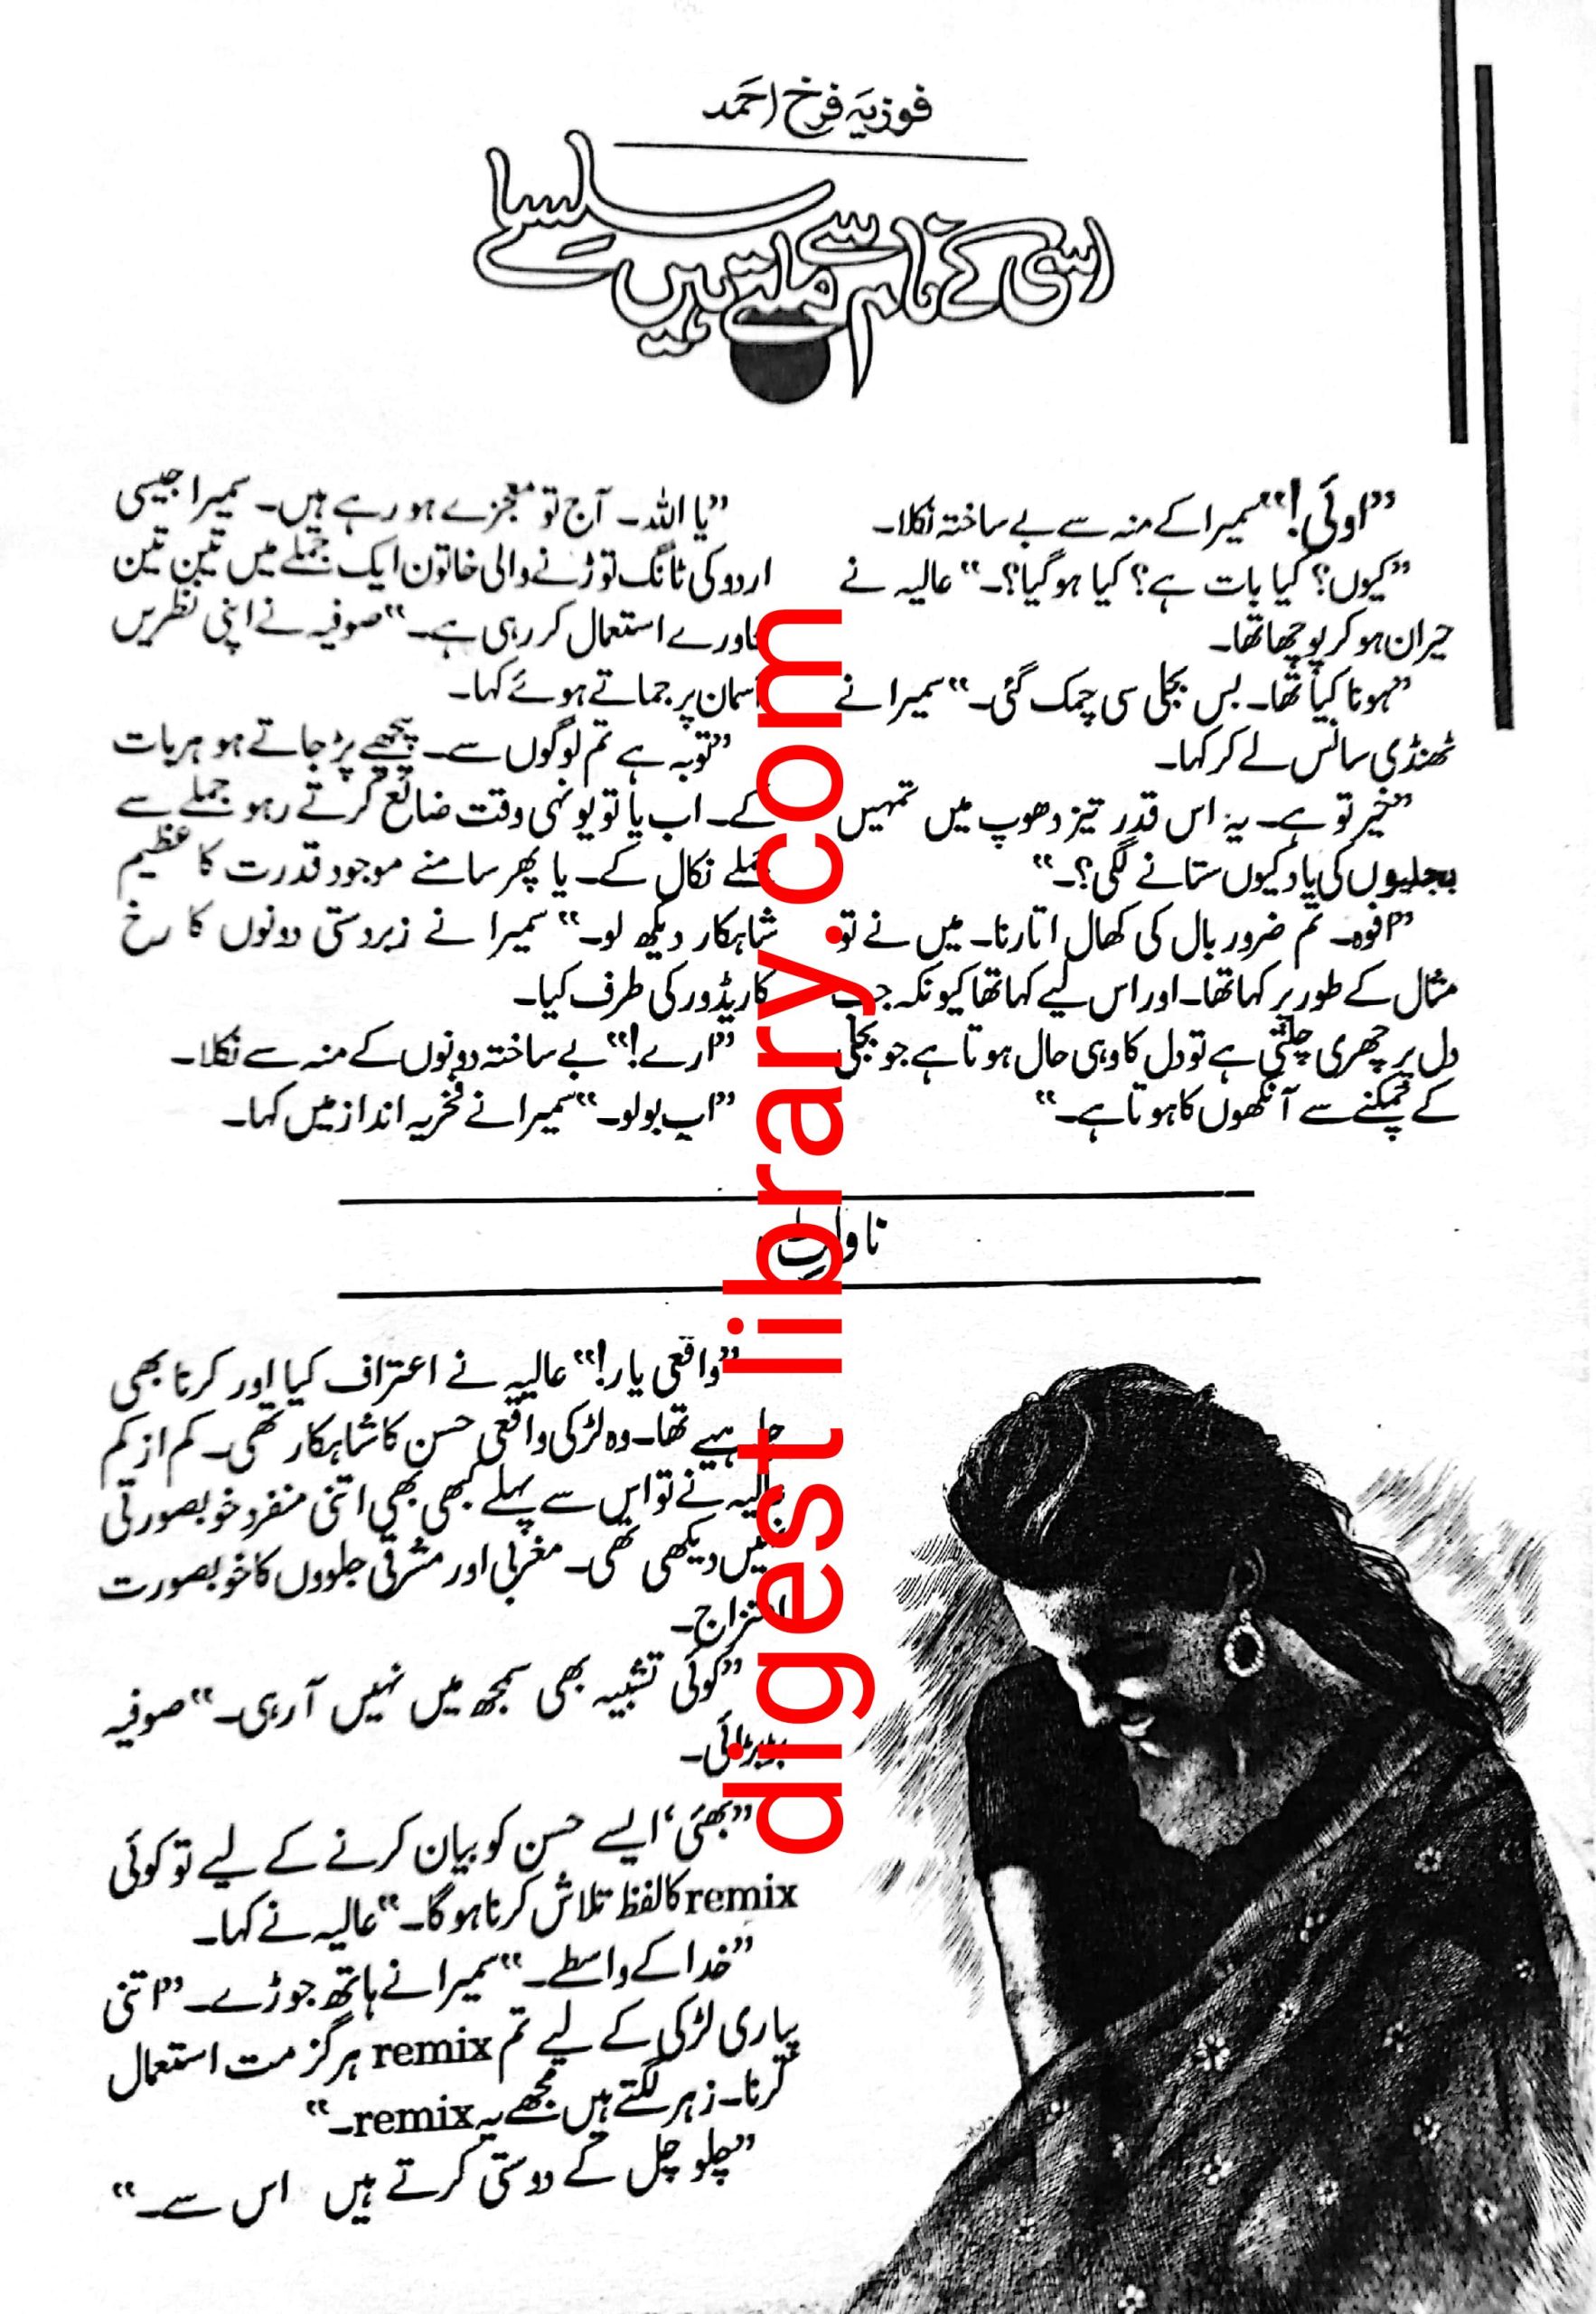 فوزیہ فرخ احمد
اسی کے نام سے ملتے ہیں سلسلے
”اوئی!“ سمیرا کے منہ سے بے ساختہ نکلا۔
”کیوں؟ کیا بات ہے؟ کیا ہو گیا؟۔“ عالیہ نے
حیران ہو کر پوچھا تھا۔
”ہونا کیا تھا۔ بس بجلی سی چمک گئی۔“ سمیرا نے
ٹھنڈی سانس لے کر کہا۔
”خیر تو ہے۔ یہ اس قدر تیز دھوپ میں تمہیں
بجلیوں کی یاد کیوں ستانے لگی؟۔“
”افوہ۔ تم ضرور بال کی کھال اتارنا۔ میں نے تو
مثال کے طور پر کہا تھا۔ اور اس لیے کہا تھا کیونکہ جب
دل پر چھری چلتی ہے تو دل کا وہی حال ہوتا ہے جو بجلی
کے چمکنے سے آنکھوں کا ہوتا ہے۔“
”یا اللہ۔ آج تو معجزے ہو رہے ہیں۔ سمیرا جیسی
اردو کی ٹانگ توڑنے والی خاتون ایک جملے میں تین تین
محاورے استعمال کر رہی ہے۔“ صوفیہ نے اپنی نظریں
آسمان پر جماتے ہوئے کہا۔
”توبہ ہے تم لوگوں سے۔ پیچھے پڑ جاتے ہو ہر بات
کے۔ اب یا تو یونہی وقت ضائع کرتے رہو جملے سے
جملے نکال کے۔ یا پھر سامنے موجود قدرت کا عظیم
شاہکار دیکھ لو۔“ سمیرا نے زبردستی دونوں کا رخ
کاریڈور کی طرف کیا۔
”ارے!“ بے ساختہ دونوں کے منہ سے نکلا۔
”اب بولو۔“ سمیرا نے فخریہ انداز میں کہا۔
ناولٹ
”واقعی یار!“ عالیہ نے اعتراف کیا اور کرنا بھی
چاہیے تھا۔ وہ لڑکی واقعی حسن کا شاہکار تھی۔ کم از کم
عالیہ نے تو اس سے پہلے کبھی بھی اتنی منفرد خوبصورتی
نہیں دیکھی تھی۔ مغربی اور مشرقی جلووں کا خوبصورت
امتزاج۔
”کوئی تشبیہ بھی سمجھ میں نہیں آ رہی۔“ صوفیہ
بڑبڑائی۔
”بھئی، ایسے حسن کو بیان کرنے کے لیے تو کوئی
remix کا لفظ تلاش کرنا ہو گا۔“ عالیہ نے کہا۔
”خدا کے واسطے۔“ سمیرا نے ہاتھ جوڑے۔ ”اتنی
پیاری لڑکی کے لیے تم remix ہرگز مت استعمال
کرنا۔ زہر لگتے ہیں مجھے یہ remix۔“
”چلو چل کے دوستی کرتے ہیں اس سے۔“
digest library.com